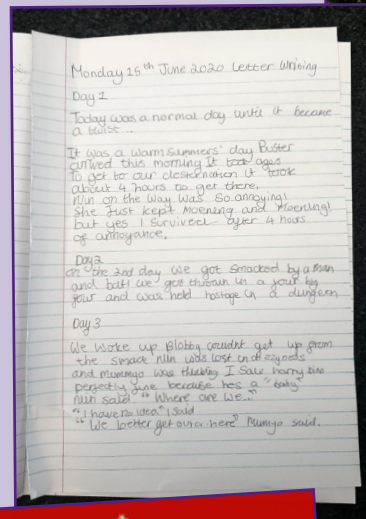 Monday 15th June 2020 Letter Writing
Day 1
Today was a normal day until it became
a twist...
It was a warm summers' day Buster
arrived this morning It took ages
to get to our destination it took
about 4 hours to get there.
Nun on the way was so annoying!
She Just kept Moening and Moening!
but yes I Survived after 4 hours
of annoyance.
Day2
on the 2nd day we got smacked by a man
and we got thrown in a
and was held hostage in a dungeon
Day 3
We woke up Blobby get up from
the smack nun was lost in
and was thinking I Saw harry
perfectly because hes a "baby"
nun said "Where are we..."
"I have no idea" I said
"We better get outa here" said.